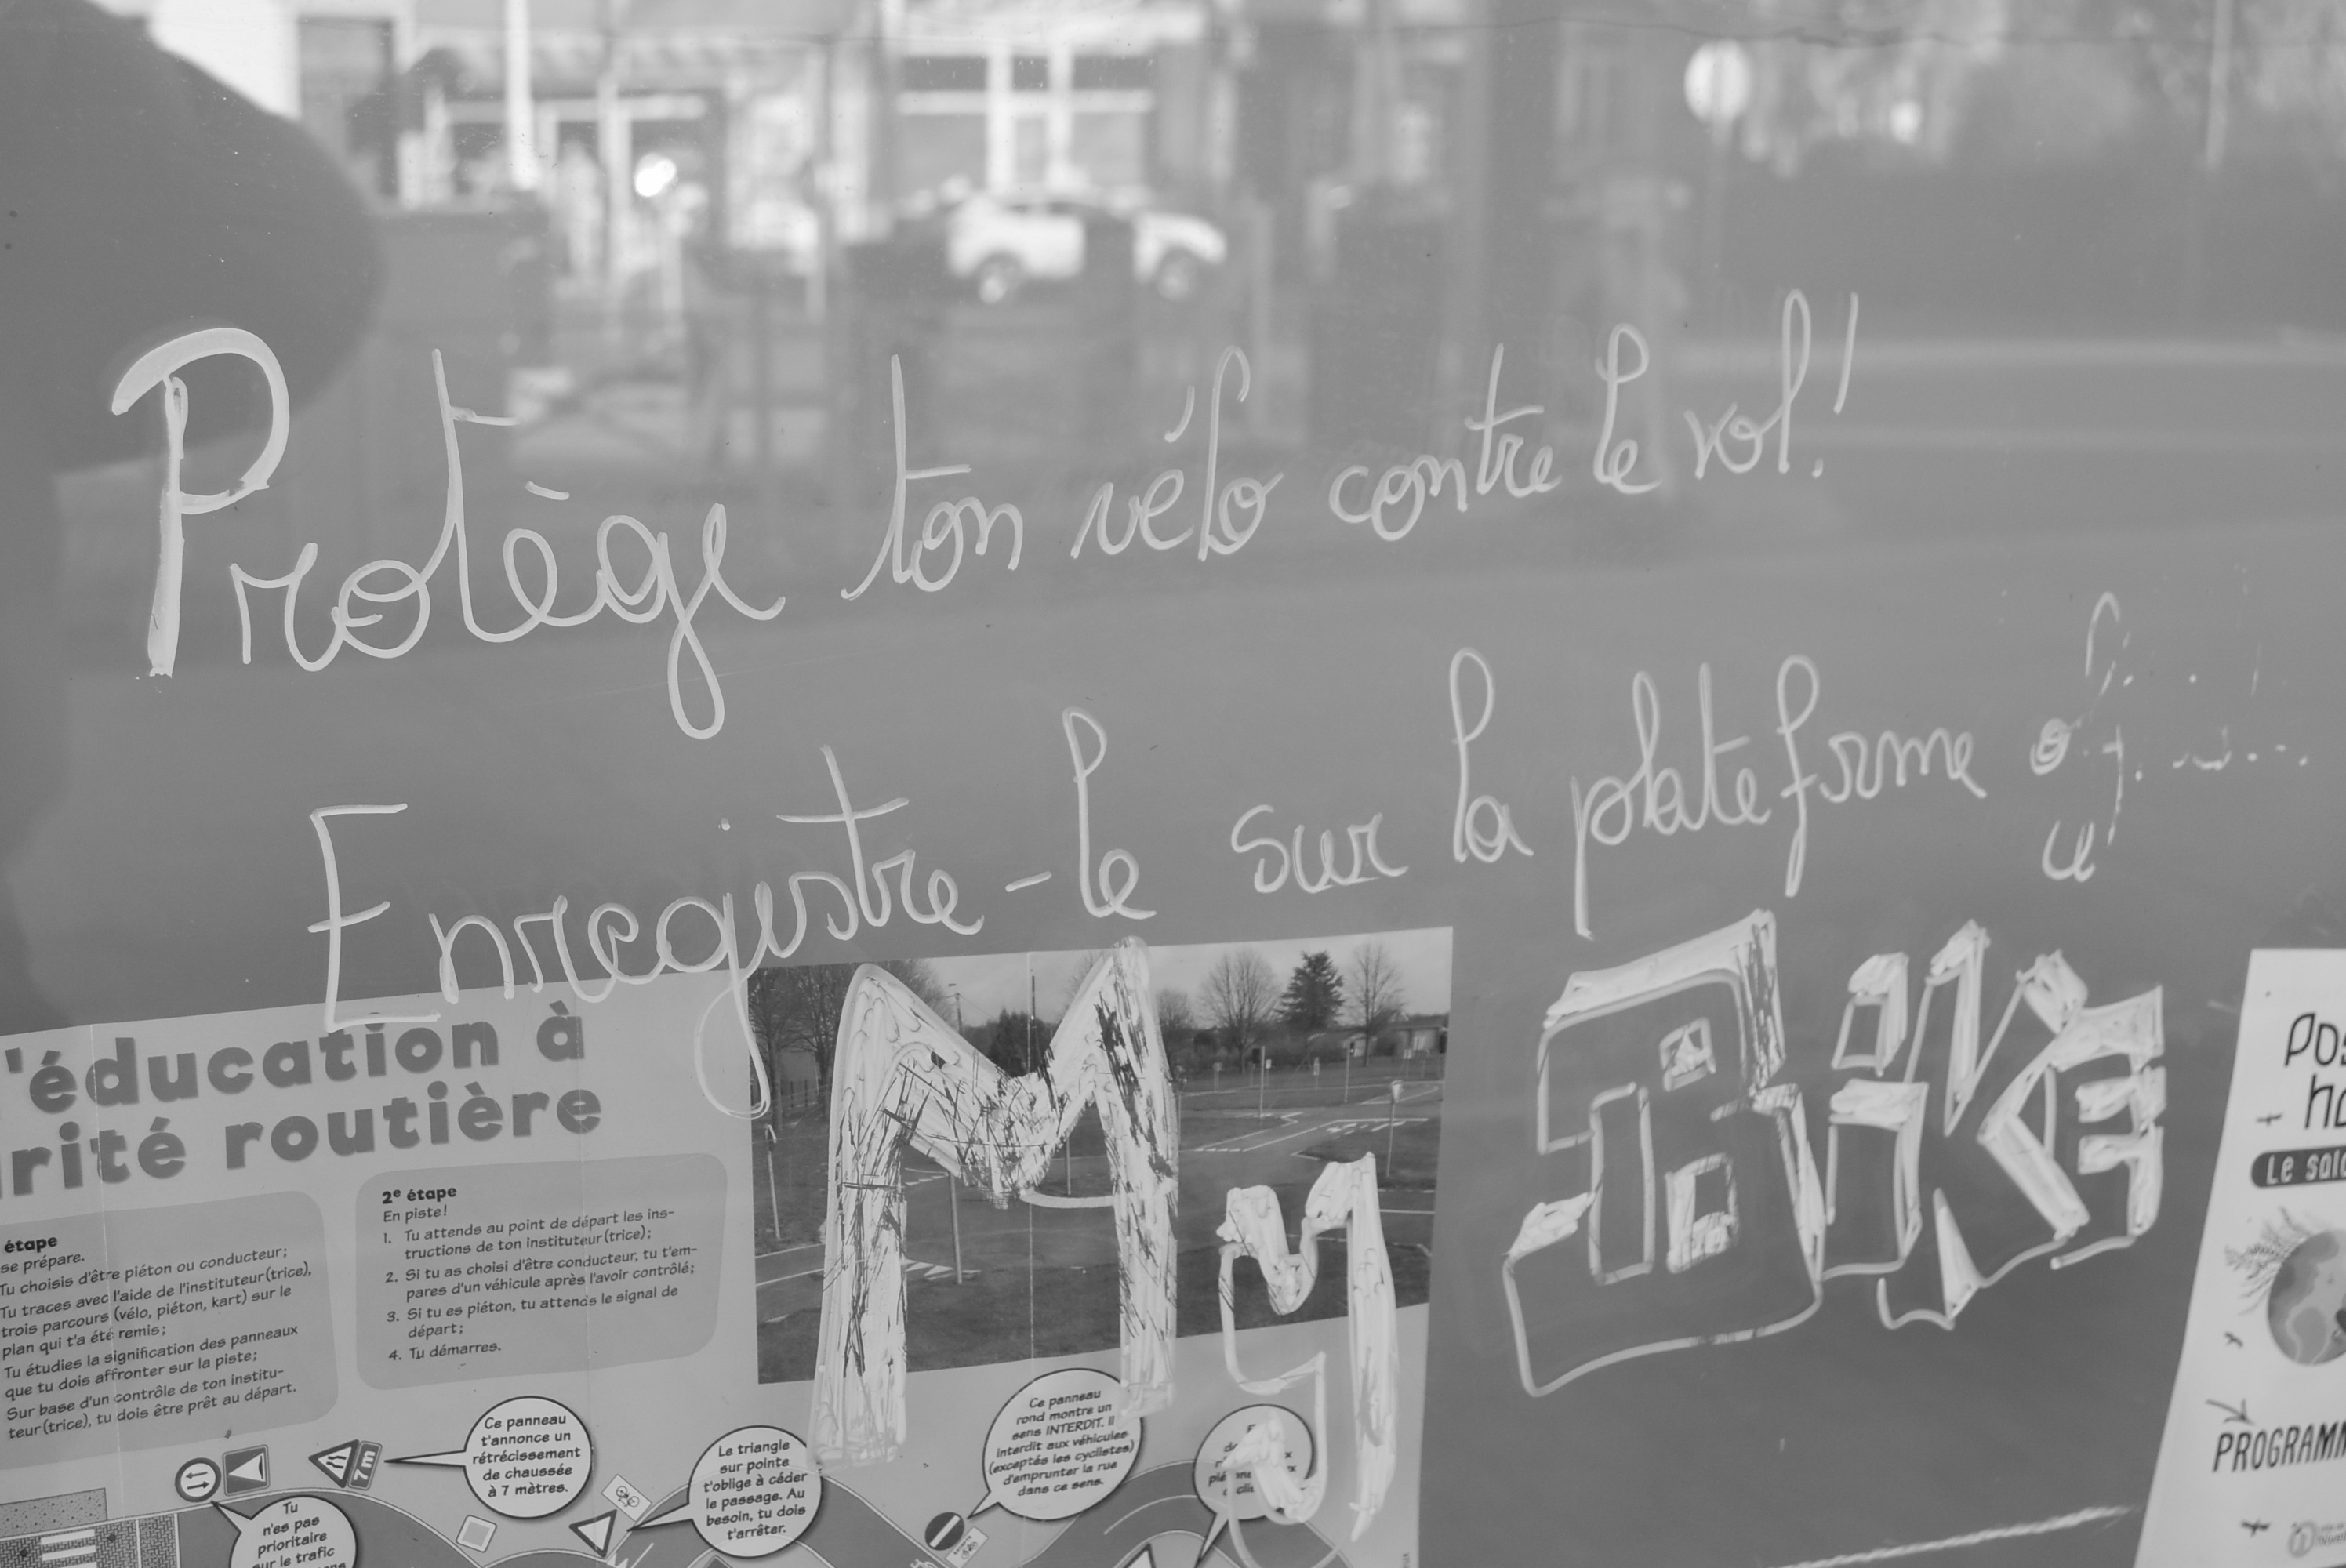 Protège ton vélo contre le vol!
Enregistre-le sur la plateforme
My BiKE
l'éducation à
rité routière
étape
se prépare.
Tu choisis d'être piéton ou conducteur;
Tu traces avec l'aide de l'instituteur(trice),
trois parcours (vélo, piéton, kart) sur le
plan qui t'a été remis;
Tu étudies la signification des panneaux
que tu dois affronter sur la piste;
Sur base d'un contrôle de ton institu-
teur(trice), tu dois être prêt au départ.
2e étape
En piste!
1. Tu attends au point de départ les ins-
tructions de ton instituteur(trice);
2. Si tu as choisi d'être conducteur, tu t'em-
pares d'un véhicule après l'avoir contrôlé;
3. Si tu es piéton, tu attends le signal de
départ;
4. Tu démarres.
7 m
Ce panneau
t'annonce un
rétrécissement
de chaussée
à 7 mètres.
Le triangle
sur pointe
t'oblige à céder
le passage. Au
besoin, tu dois
t'arrêter.
Ce panneau
rond montre un
sens INTERDIT. Il
interdit aux véhicules
(exceptés les cyclistes)
d'emprunter la rue
dans ce sens.
Tu
n'es pas
prioritaire
sur le trafic
Le
PROGRAMM